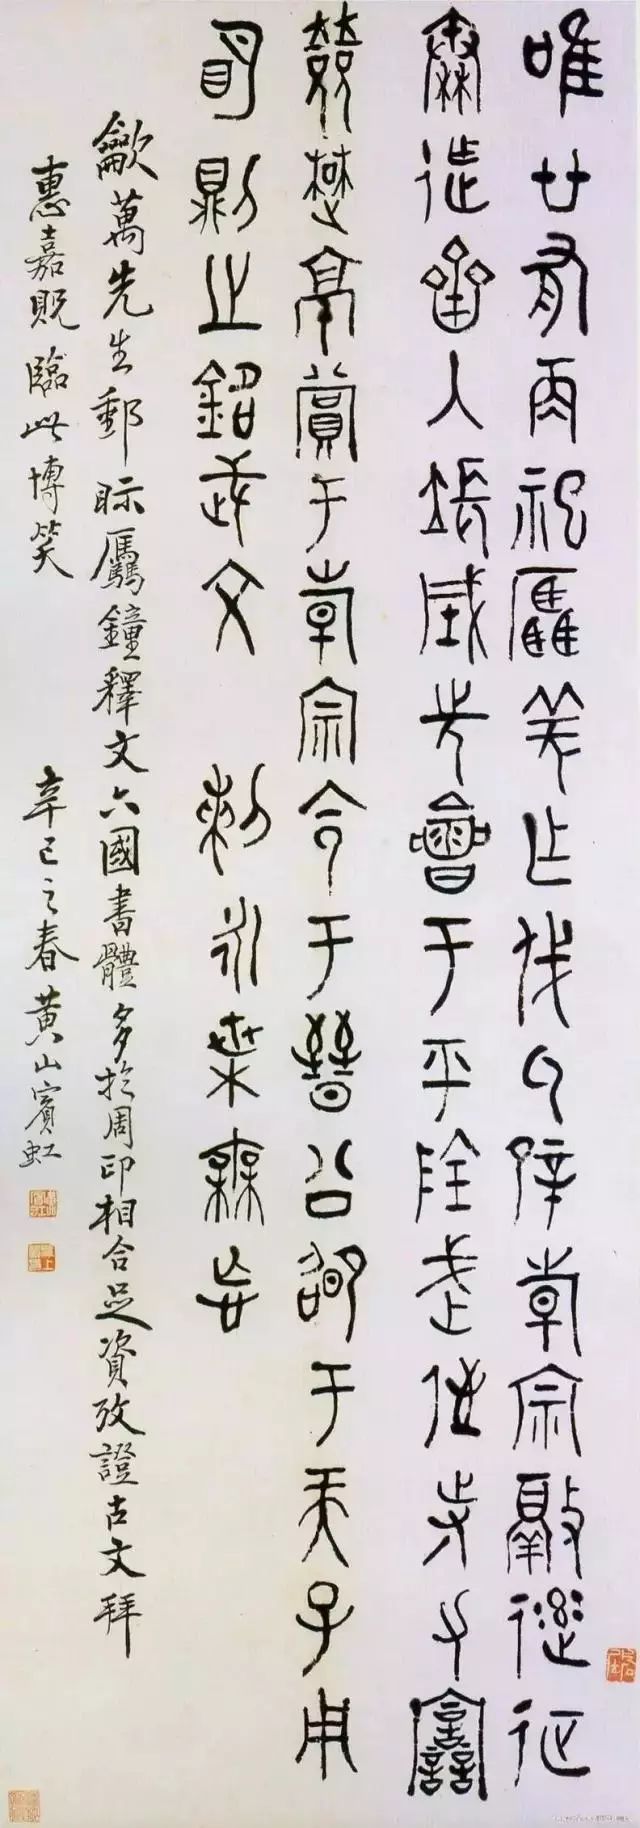 唯廿又再祀驫羌乍伐氒辟倝宗敲達征
秦迮齊入長城先會于平陰武侄寺力𧭢
敓楚京賞于倝宗令于晉公卲于天子用
明則之銘武文 剌永枼無忘
萬先生郵眎驫鐘釋文六國書體多於周印相合足資攷證古文拜
惠嘉貺臨此博笑
辛巳之春黃山賓虹